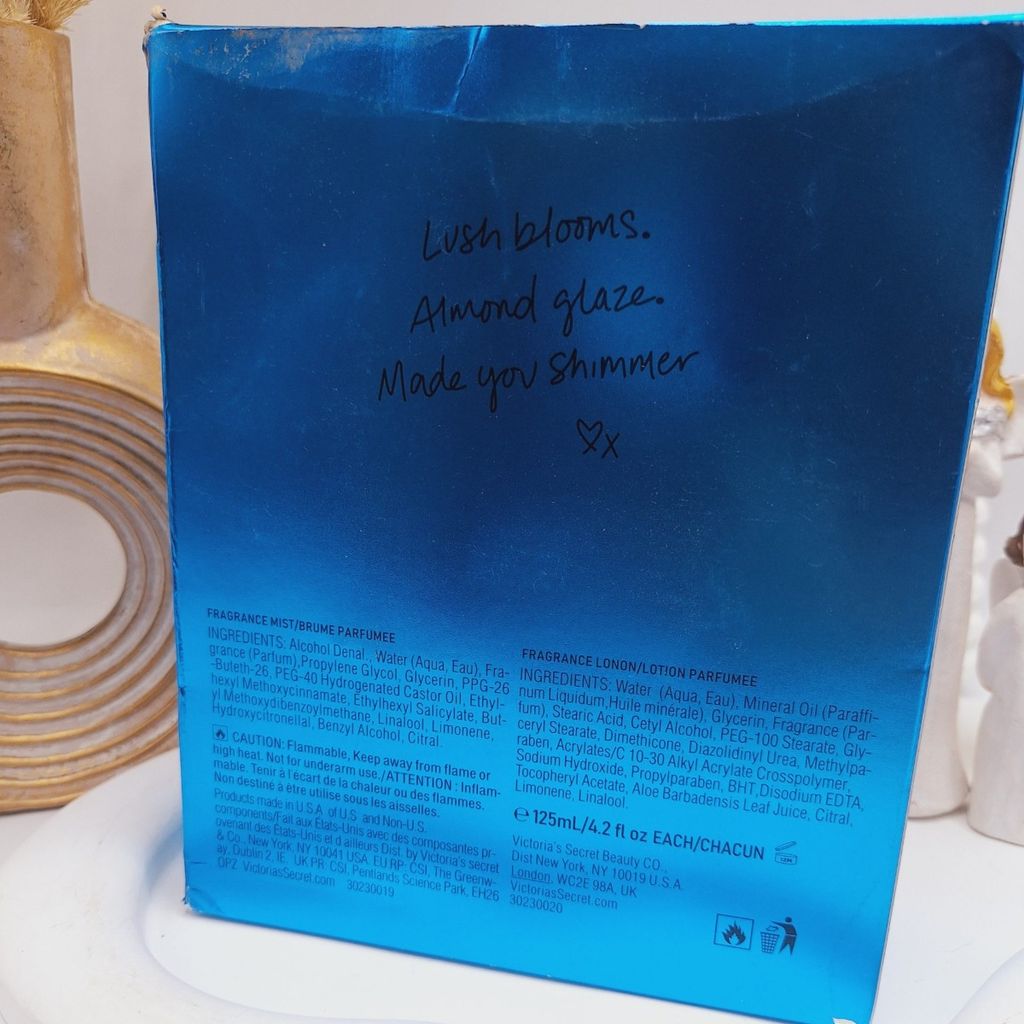 Lush blooms.
Almond glaze.
Made you shimmer
♡x
FRAGRANCE MIST/BRUME PARFUMEE
INGREDIENTS: Alcohol Denal., Water (Aqua, Eau), Fra-
grance (Parfum),Propylene Glycol, Glycerin, PPG-26
-Buteth-26, PEG-40 Hydrogenated Castor Oil, Ethyl-
hexyl Methoxycinnamate, Ethylhexyl Salicylate, But-
yl Methoxydibenzoylmethane, Linalool, Limonene,
Hydroxycitronellal, Benzyl Alcohol, Citral.
CAUTION: Flammable, Keep away from flame or
high heat. Not for underarm use./ATTENTION : Inflam-
mable. Tenir à l'écart de la chaleur ou des flammes.
Non destiné à être utilisé sous les aisselles.
Products made in U.S.A. of U.S. and Non-U.S.
components/Fait aux États-Unis avec des composantes pr-
ovenant des États-Unis et d ailleurs Dist. by Victoria's secret
& Co., New York, NY 10041 USA. EU RP: CSI, The Greenw-
ay, Dublin 2, IE. UK PR: CSI, Pentlands Science Park, EH26
OPZ. VictoriasSecret.com 30230019
FRAGRANCE LONON/LOTION PARFUMEE
INGREDIENTS: Water (Aqua, Eau), Mineral Oil (Paraffi-
num Liquidum,Huile minérale), Glycerin, Fragrance (Par-
fum), Stearic Acid, Cetyl Alcohol, PEG-100 Stearate, Gly-
ceryl Stearate, Dimethicone, Diazolidinyl Urea, Methylpa-
raben, Acrylates/C 10-30 Alkyl Acrylate Crosspolymer,
Sodium Hydroxide, Propylparaben, BHT,Disodium EDTA,
Tocopheryl Acetate, Aloe Barbadensis Leaf Juice, Citral,
Limonene, Linalool.
℮ 125mL/4.2 fl oz EACH/CHACUN
12M
Victoria's Secret Beauty CO.,
Dist New York, NY 10019 U.S.A.
London, WC2E 98A, UK
VictoriasSecret.com
30230020